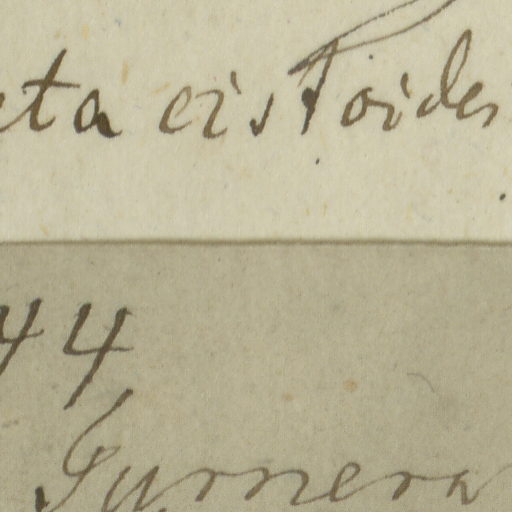 eta cistoides
44
Turnera